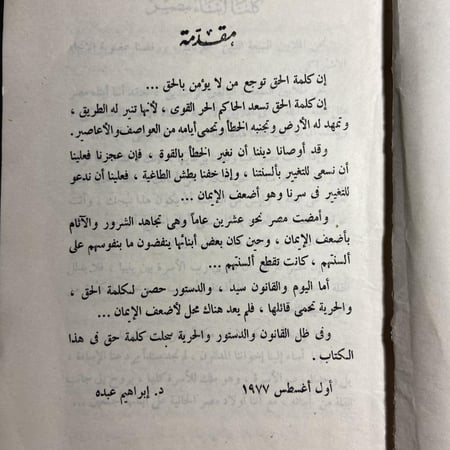 مقدمة
إن كلمة الحق توجع من لا يؤمن بالحق ...
إن كلمة الحق تسعد الحاكم الحر القوى ، لأنها تنير له الطريق ،
وتمهد له الأرض وتجنبه الخطأ وتحمى أيامه من العواصف والأعاصير .
وقد أوصانا ديننا أن نغير الخطأ بالقوة ، فإن عجزنا فعلينا
أن نسعى للتغيير بألسنتنا ، وإذا خفنا بطش الطاغية ، فعلينا أن ندعو
للتغيير فى سرنا وهو أضعف الإيمان ...
وأمضت مصر نحو عشرين عاماً وهى تجاهد الشرور والآثام
بأضعف الإيمان ، وحين كان بعض أبنائها ينفضون ما بنفوسهم على
ألسنتهم ، كانت تقطع ألسنتهم ...
أما اليوم والقانون سيد ، والدستور حصن لكلمة الحق ،
والحرية تحمى قائلها ، فلم يعد هناك محل لأضعف الإيمان ...
وفى ظل القانون والدستور والحرية سجلت كلمة حق فى هذا
الكتاب .
أول أغسطس ١٩٧٧
د. إبراهيم عبده